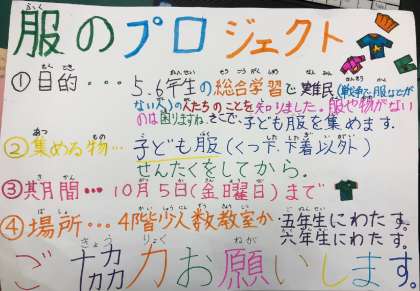 服のプロジェクト
①目的…5.6年生の総合学習で難民(戦争で服などが
ない人)の人たちのことを知りました。服や物がない
のは困りますね。そこで、子ども服を集めます。
②集める物…子ども服(くつ下、下着以外)
せんたくをしてから。
③期間…10月5日(金曜日)まで
④場所…4階少人数教室か五年生にわたす。
六年生にわたす。
ご協力お願いします